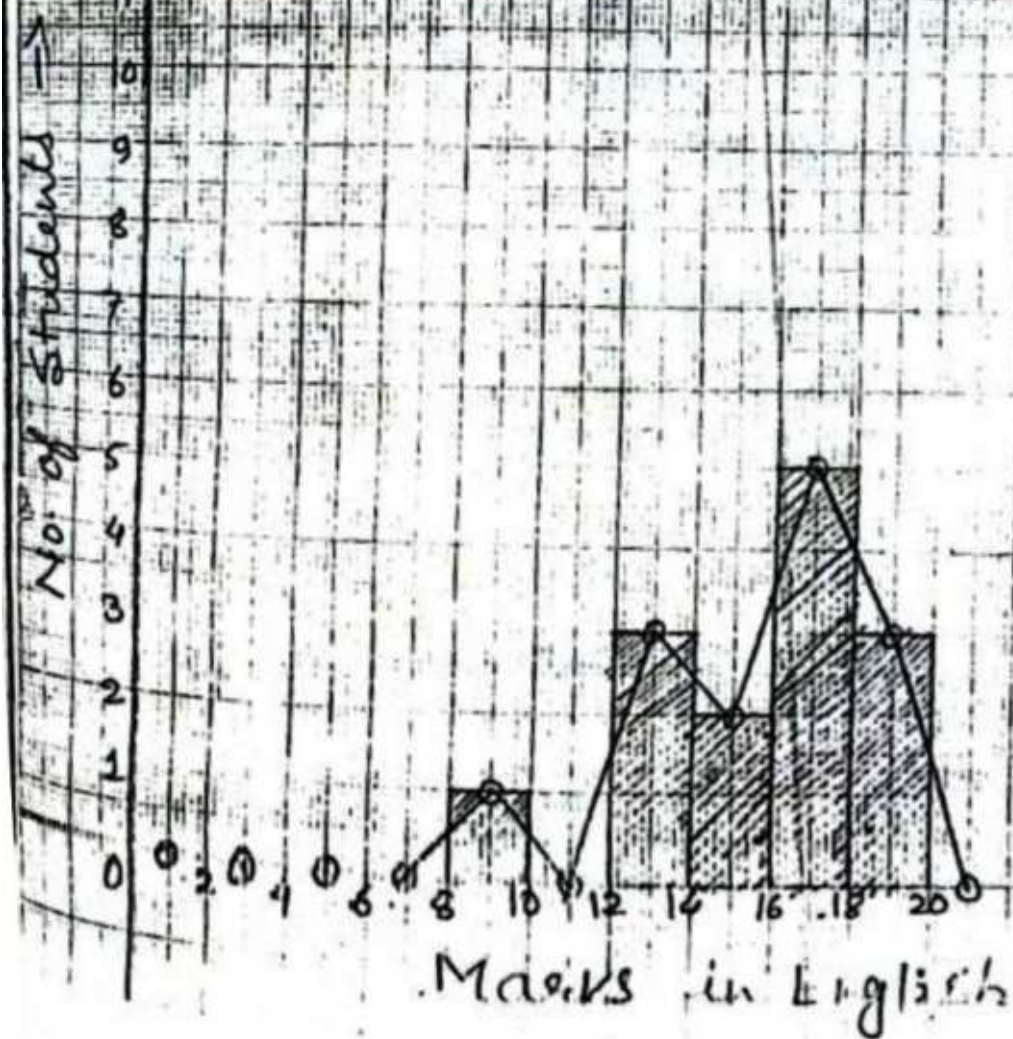 No. of Students →
10
9
8
7
6
5
4
3
2
1
0 2 4 6 8 10 12 14 16 18 20
Marks in English